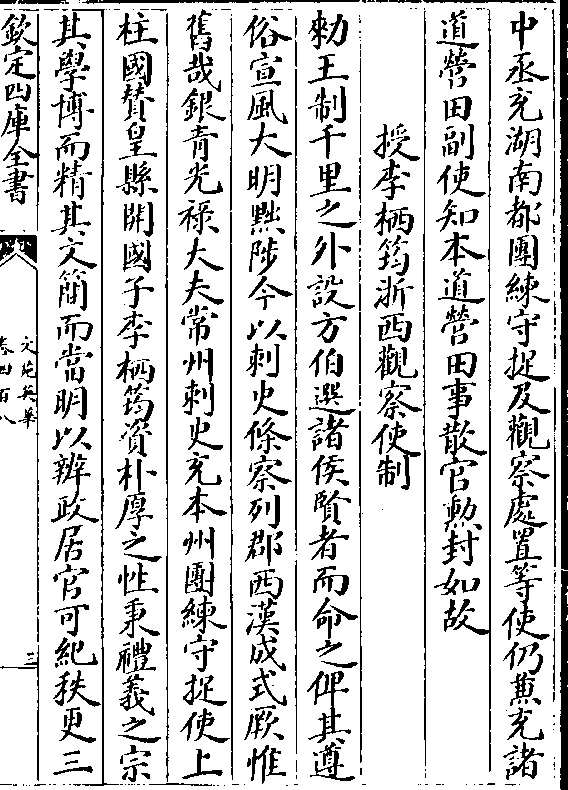 中丞充湖南都團練守捉及觀察處置等使仍兼充諸
道營田副使知本道營田事散官勲封如故
授李栖筠浙西觀察使制
勅王制千里之外設方伯選諸侯賢者而命之俾其遵
俗宣風大明黜陟今以刺史條察列郡西漢成式厥惟
舊哉銀青光禄大夫常州刺史充本州團練守捉使上
柱國賛皇縣開國子李栖筠資朴厚之性秉禮義之宗
其學博而精其文簡而當明以辨政居官可紀秩更三
欽定四庫全書
文苑英華
卷四百八
三